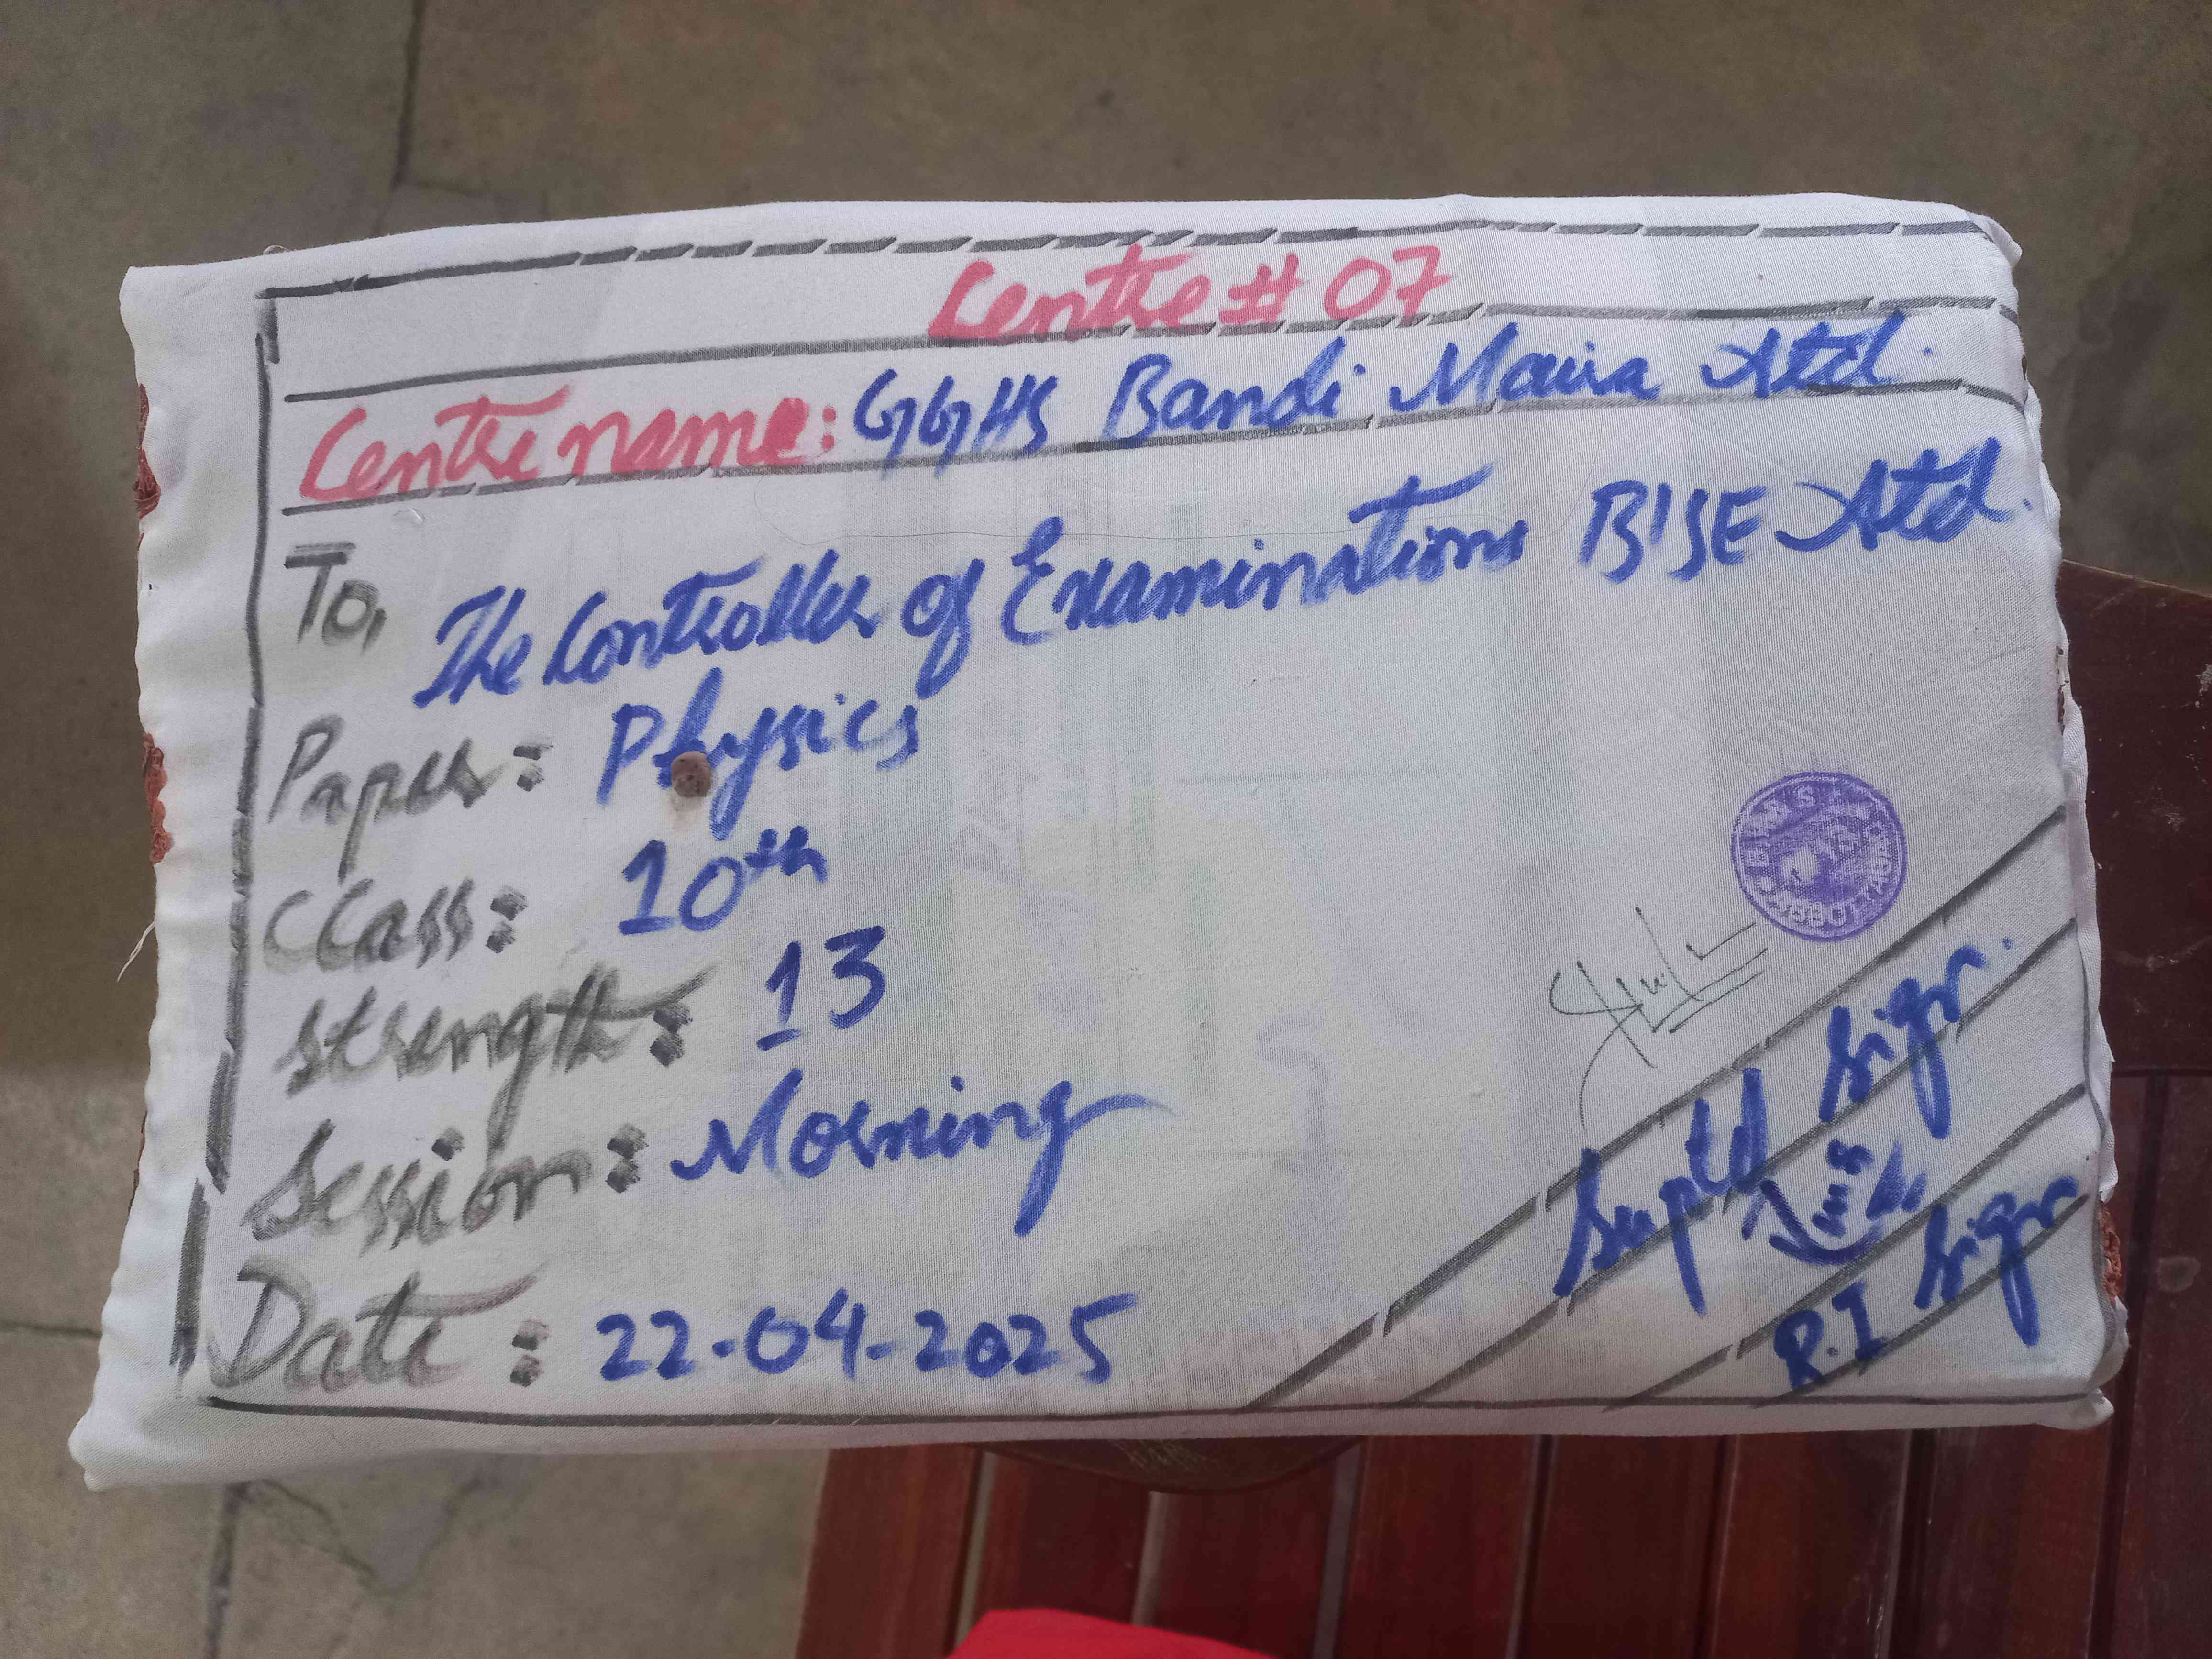 Centre # 07
Centre name: GGHS Bandi Maira Atd.
To,
The Controller of Examinations BISE Atd.
Paper: Physics
Class: 10th
Strength: 13
Session: Morning
Date: 22-04-2025
Suptd Sign.
R.I Sign
ABBOTTABAD